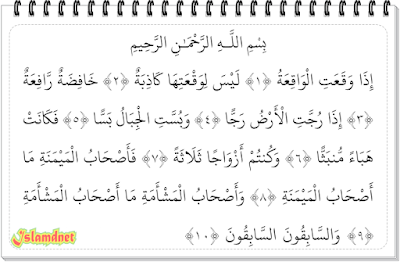 بِسْمِ اللَّـهِ الرَّحْمَـٰنِ الرَّحِيمِ
إِذَا وَقَعَتِ الْوَاقِعَةُ ﴿١﴾ لَيْسَ لِوَقْعَتِهَا كَاذِبَةٌ ﴿٢﴾ خَافِضَةٌ رَّافِعَةٌ
﴿٣﴾ إِذَا رُجَّتِ الْأَرْضُ رَجًّا ﴿٤﴾ وَبُسَّتِ الْجِبَالُ بَسًّا ﴿٥﴾ فَكَانَتْ
هَبَاءً مُّنبَثًّا ﴿٦﴾ وَكُنتُمْ أَزْوَاجًا ثَلَاثَةً ﴿٧﴾ فَأَصْحَابُ الْمَيْمَنَةِ مَا
أَصْحَابُ الْمَيْمَنَةِ ﴿٨﴾ وَأَصْحَابُ الْمَشْأَمَةِ مَا أَصْحَابُ الْمَشْأَمَةِ
﴿٩﴾ وَالسَّابِقُونَ السَّابِقُونَ ﴿١٠﴾
Islamdnet